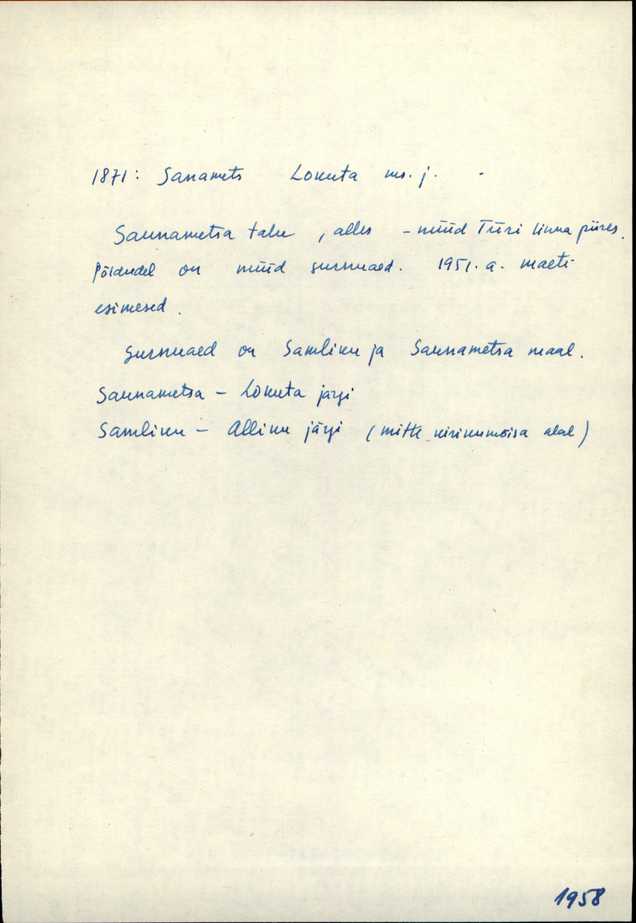 1871: Sanamets Lokuta ms. j. -
Saunametsa talu, alles - nüüd Türi linna piires.
Põldudel on nüüd surnuaed. 1951. a. maeti
esimesed.
Surnuaed on Samliku ja Saunametsa maal.
Saunametsa - Lokuta järgi
Samliku - Alliku järgi (mitte kirikumõisa alal)
1958